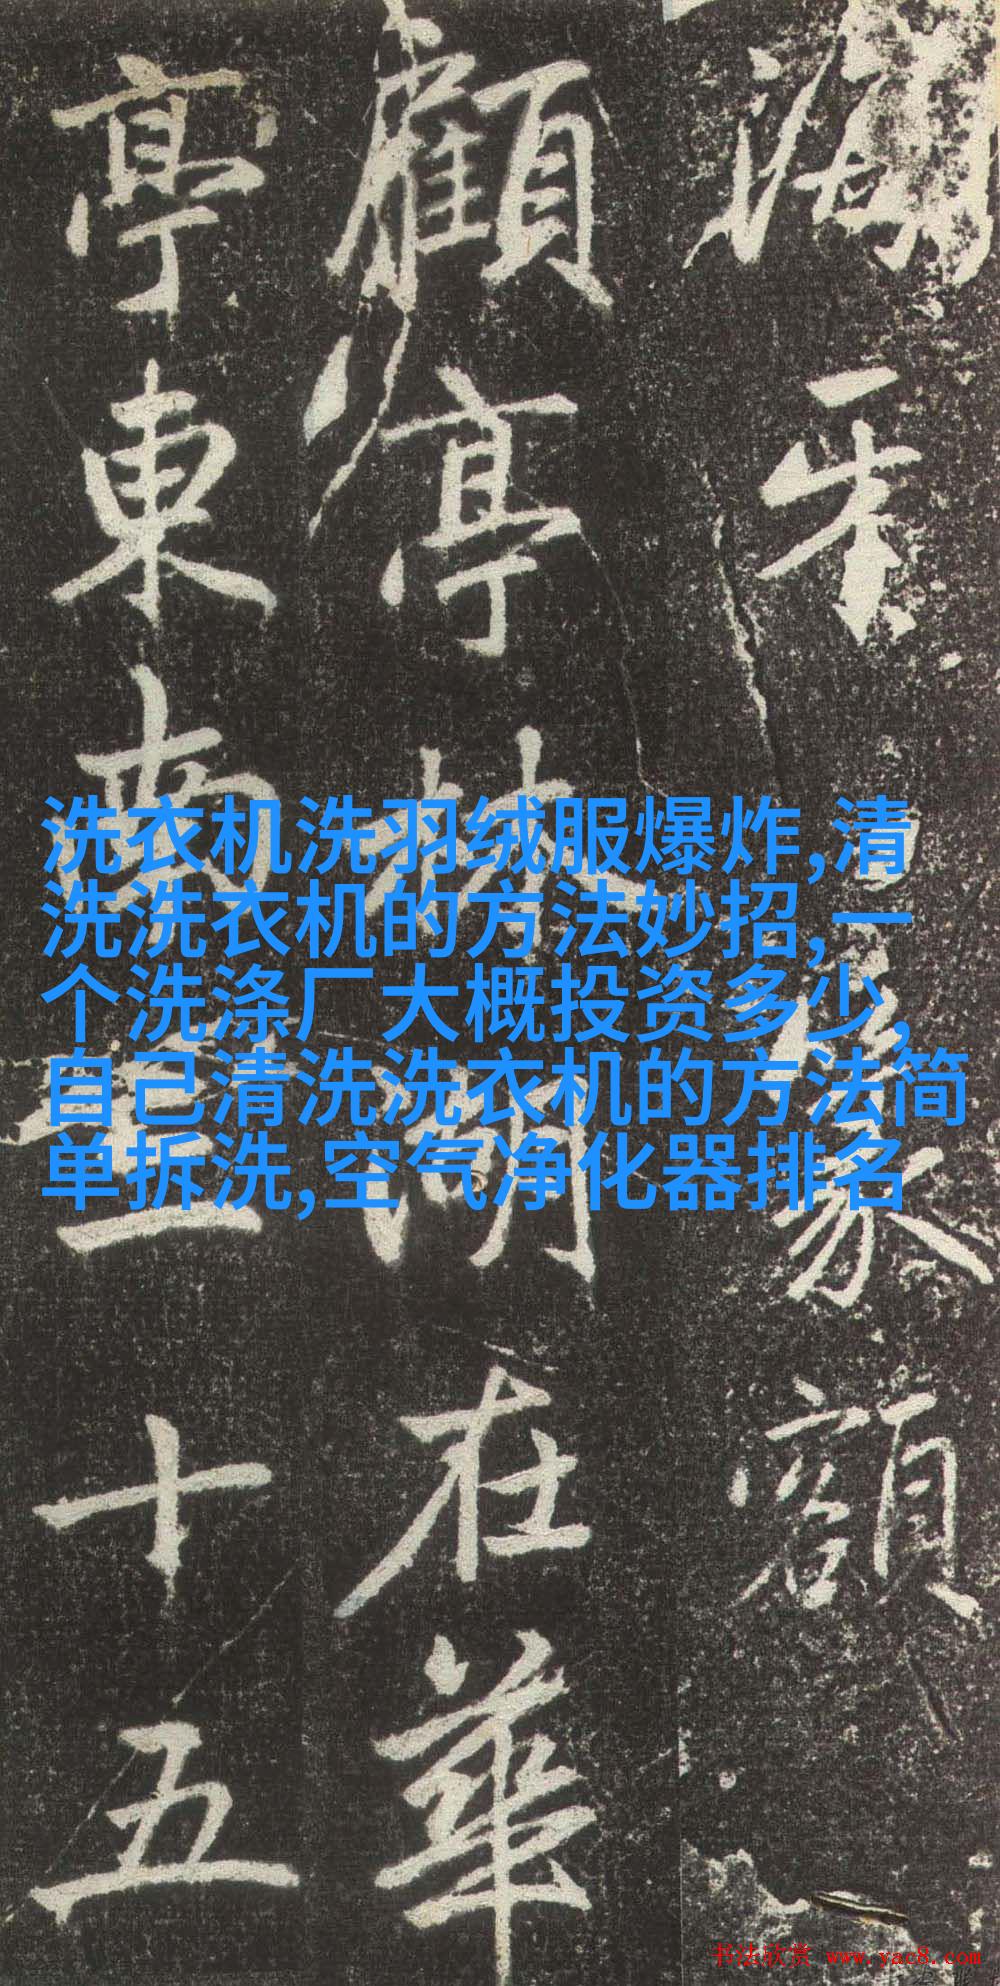 篆額
顧亭林湖在華
亭東南三十五
洗衣机洗羽绒服爆炸,清
洗洗衣机的方法妙招,一
个洗涤厂大概投资多少,
自己清洗洗衣机的方法简
单拆洗,空气净化器排名
书法欣赏 www.yac8.com